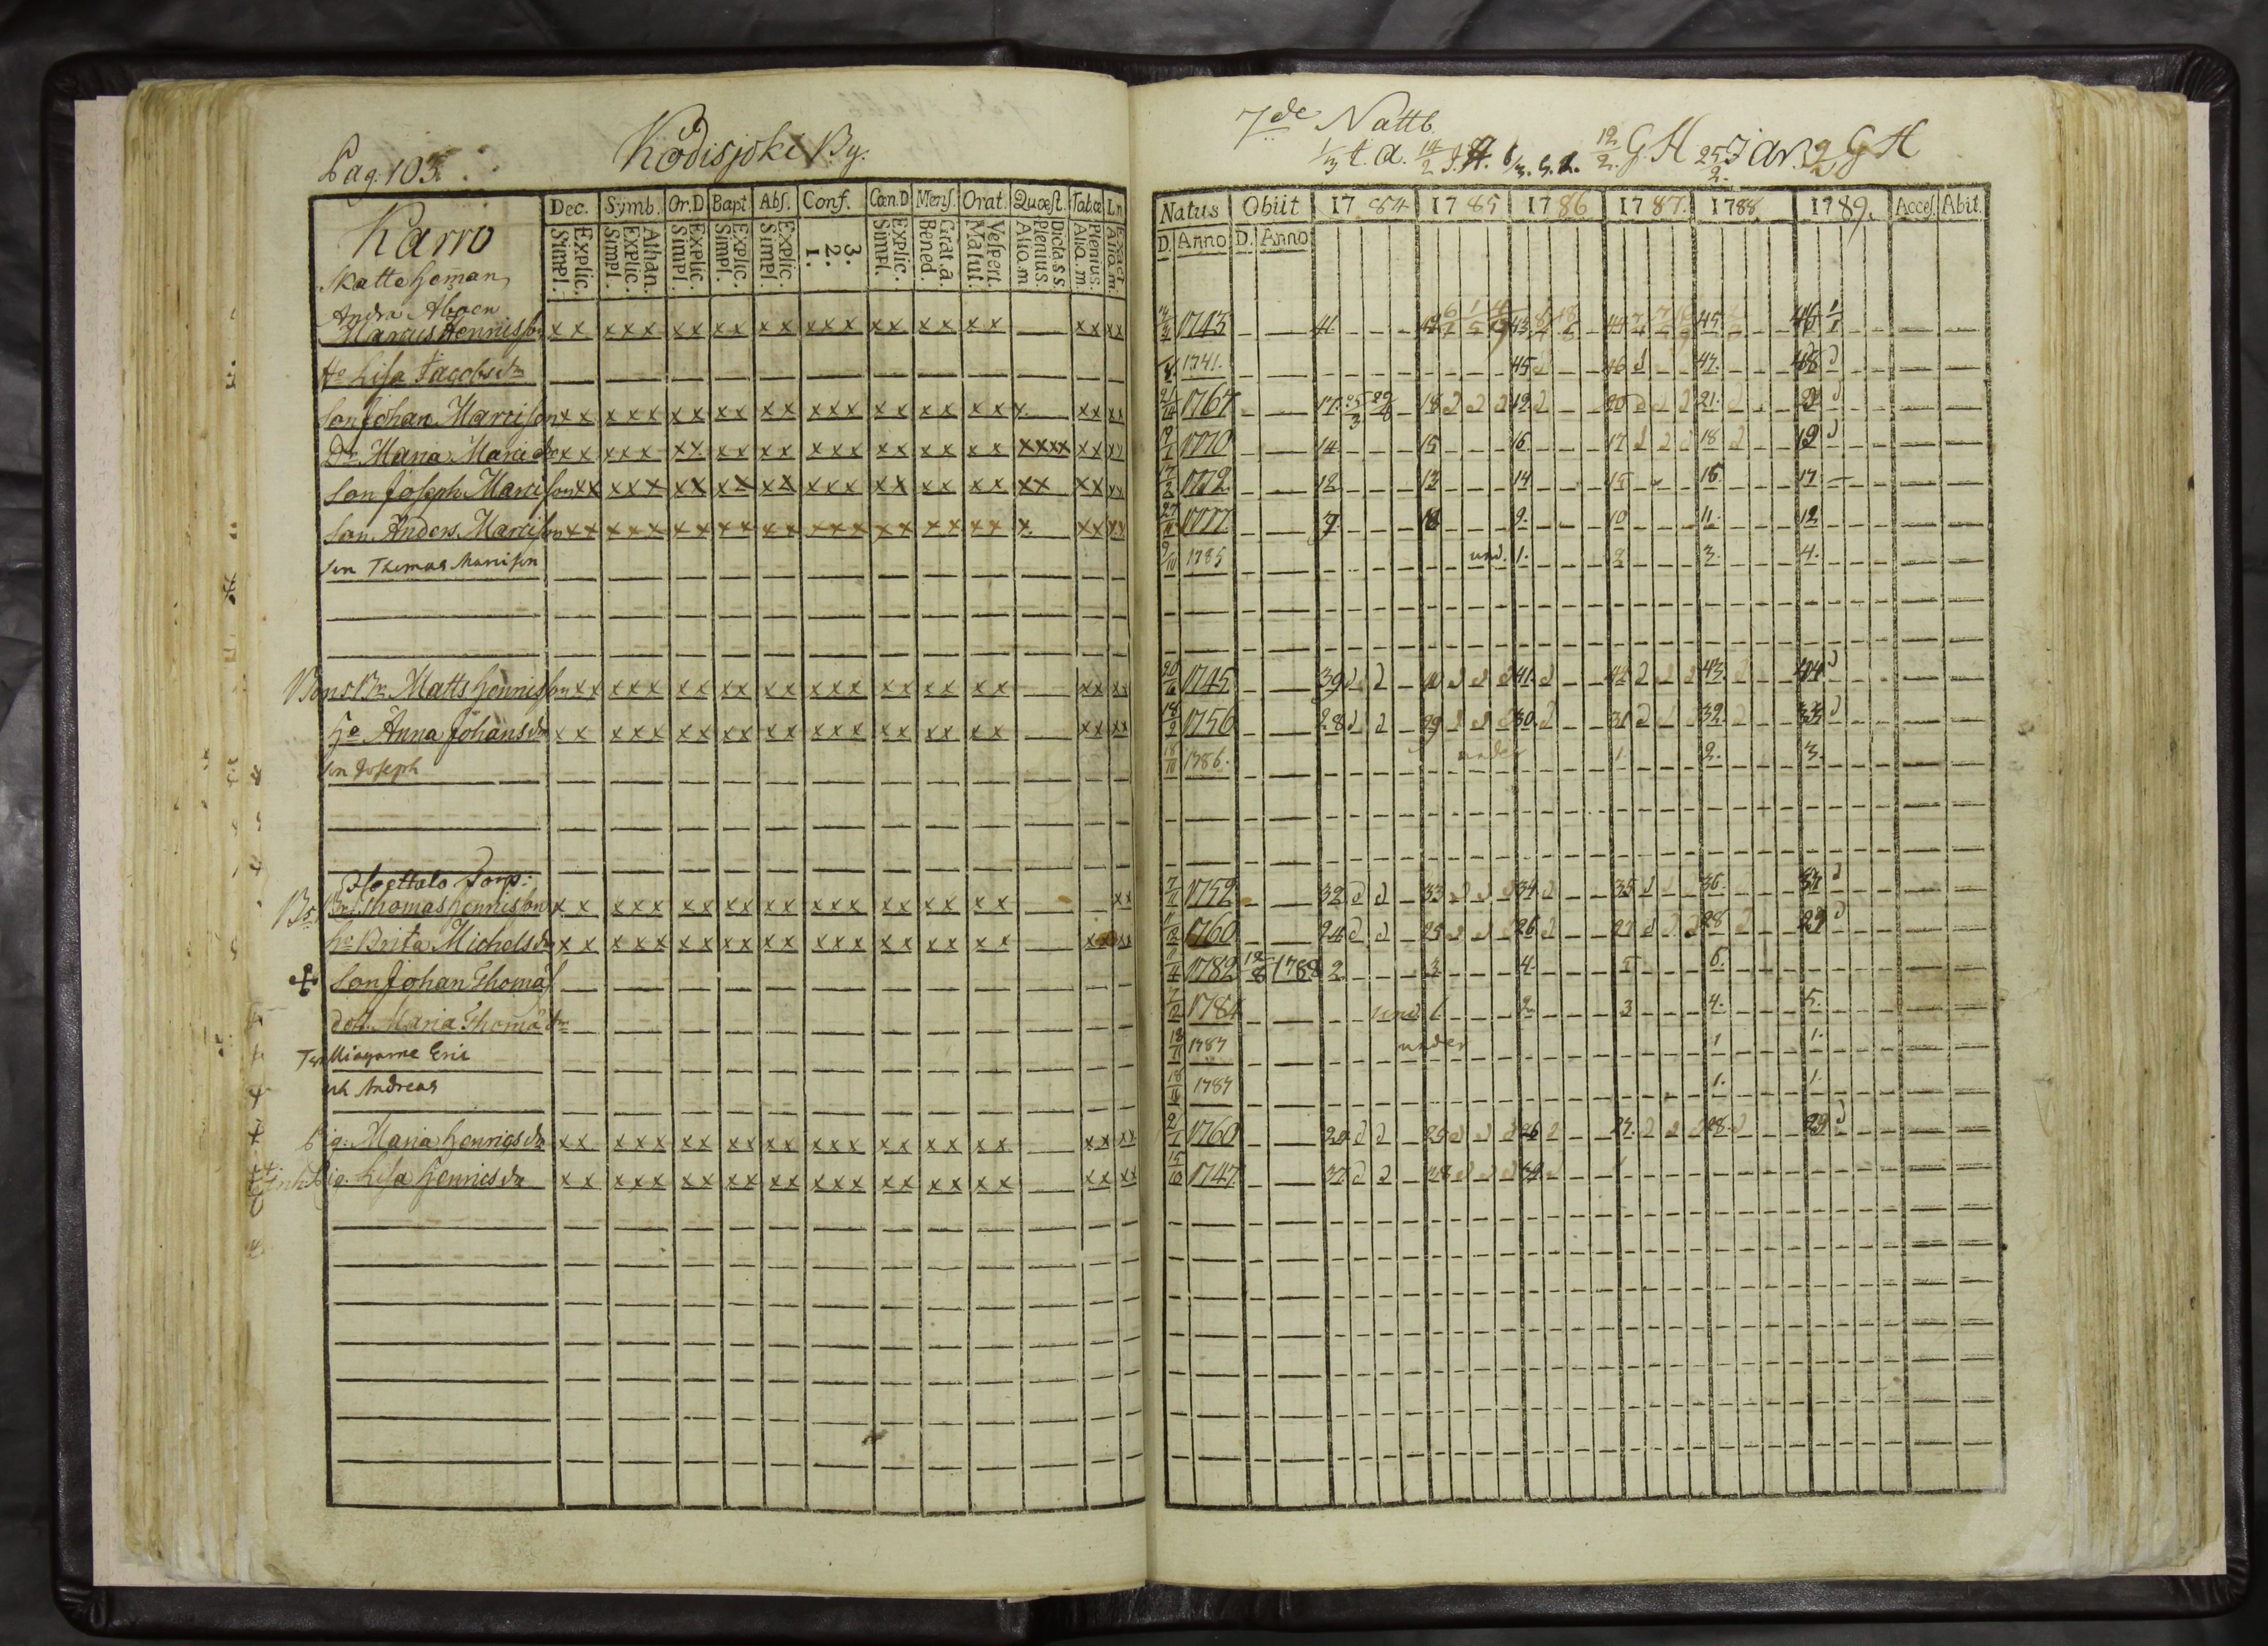 Pag. 103.
Kodisjoki By.
Karro
Skatte Heman
Dec. Symb. Or.D Bapt Abſ. Conf. Cœn.D Menſ. Orat. Quæſt. Tabœ Ln
Explic. Simpl. Athan. Explic. Simpl. Explic. Simpl. Explic. Simpl. Explic. Simpl. 3. 2. 1. Explic. Simpl. Grat.a. Bened. Veſpert. Matut. Dicta.s.s. Plenius. Aliq.m Plenius. Aliq.m. Exact. Aliq.m.
Andra Åboen
Marcus Hennisson xx xxx xx xx xx xxx xx xx xx xx xx
Ho Lisa Jacobsdr
Son Johan Marcison xx xxx xx xx xx xxx xx xx xx x. xx xx
Dr Maria Marcidr xx xxx xx xx xx xxx xx xx xx xxxx xx xx
Son Joseph Marcison xx xxx xx xx xx xxx xx xx xx xx xx xx
Son Anders Marcison xx xxx xx xx xx xxx xx xx xx x. xx xx
Son Thomas Marcison
Bons Br. Matts Hennisson xx xxx xx xx xx xxx xx xx xx xx xx
Ho Anna Johansdr xx xxx xx xx xx xxx xx xx xx xx xx
Son Joseph
Torp:
Bs. Br. Thomas Hennisson xx xxx xx xx xx xxx xx xx xx xx
Ho Brita Michelsdr xx xxx xx xx xx xxx xx xx xx xx xx
Son Johan Thomas
dott. Maria Thomædr
Eric
och Andreas
Pig. Maria Henricsdr xx xxx xx xx xx xxx xx xx xx xx xx
Inh. Pig. Lisa Henricsdr xx xxx xx xx xx xxx xx xx xx xx xx
7de Nattb.
1/3 t. a. 14/2 J. H. 12/2. G. H 25/2. J ar. G H
Natus Obiit 1784 1785 1786 1787. 1788 1789. Acceſ. Abit.
D. Anno D. Anno
1743 41 43 44 45 46
1741. 45 46 47. 48
21/10 1767 17. 18 19 20 21. 22
1770 14 15 16 17 18 19
17/2 1772 12 13 14 15 16. 17
27/11 1777 7 8 9. 10 11. 12
9/10 1785 und. 1. 2 3. 4.
1745 39 40 41 42 43. 44
18/9 1756 28 29 30. 31 32. 33
18/10 1786. under 1. 2. 3.
1752 32 33 34 35 36. 37
1760 24 25 26 27 28 29
1782 12/8 1788 2 3 4. 5 6.
1784 und 1 2 3 4. 5.
18/11 1787 under 1 1.
18/11 1787 1. 1.
1760 24 25 26 27. 28. 29
15/10 1747 37. 38 39.